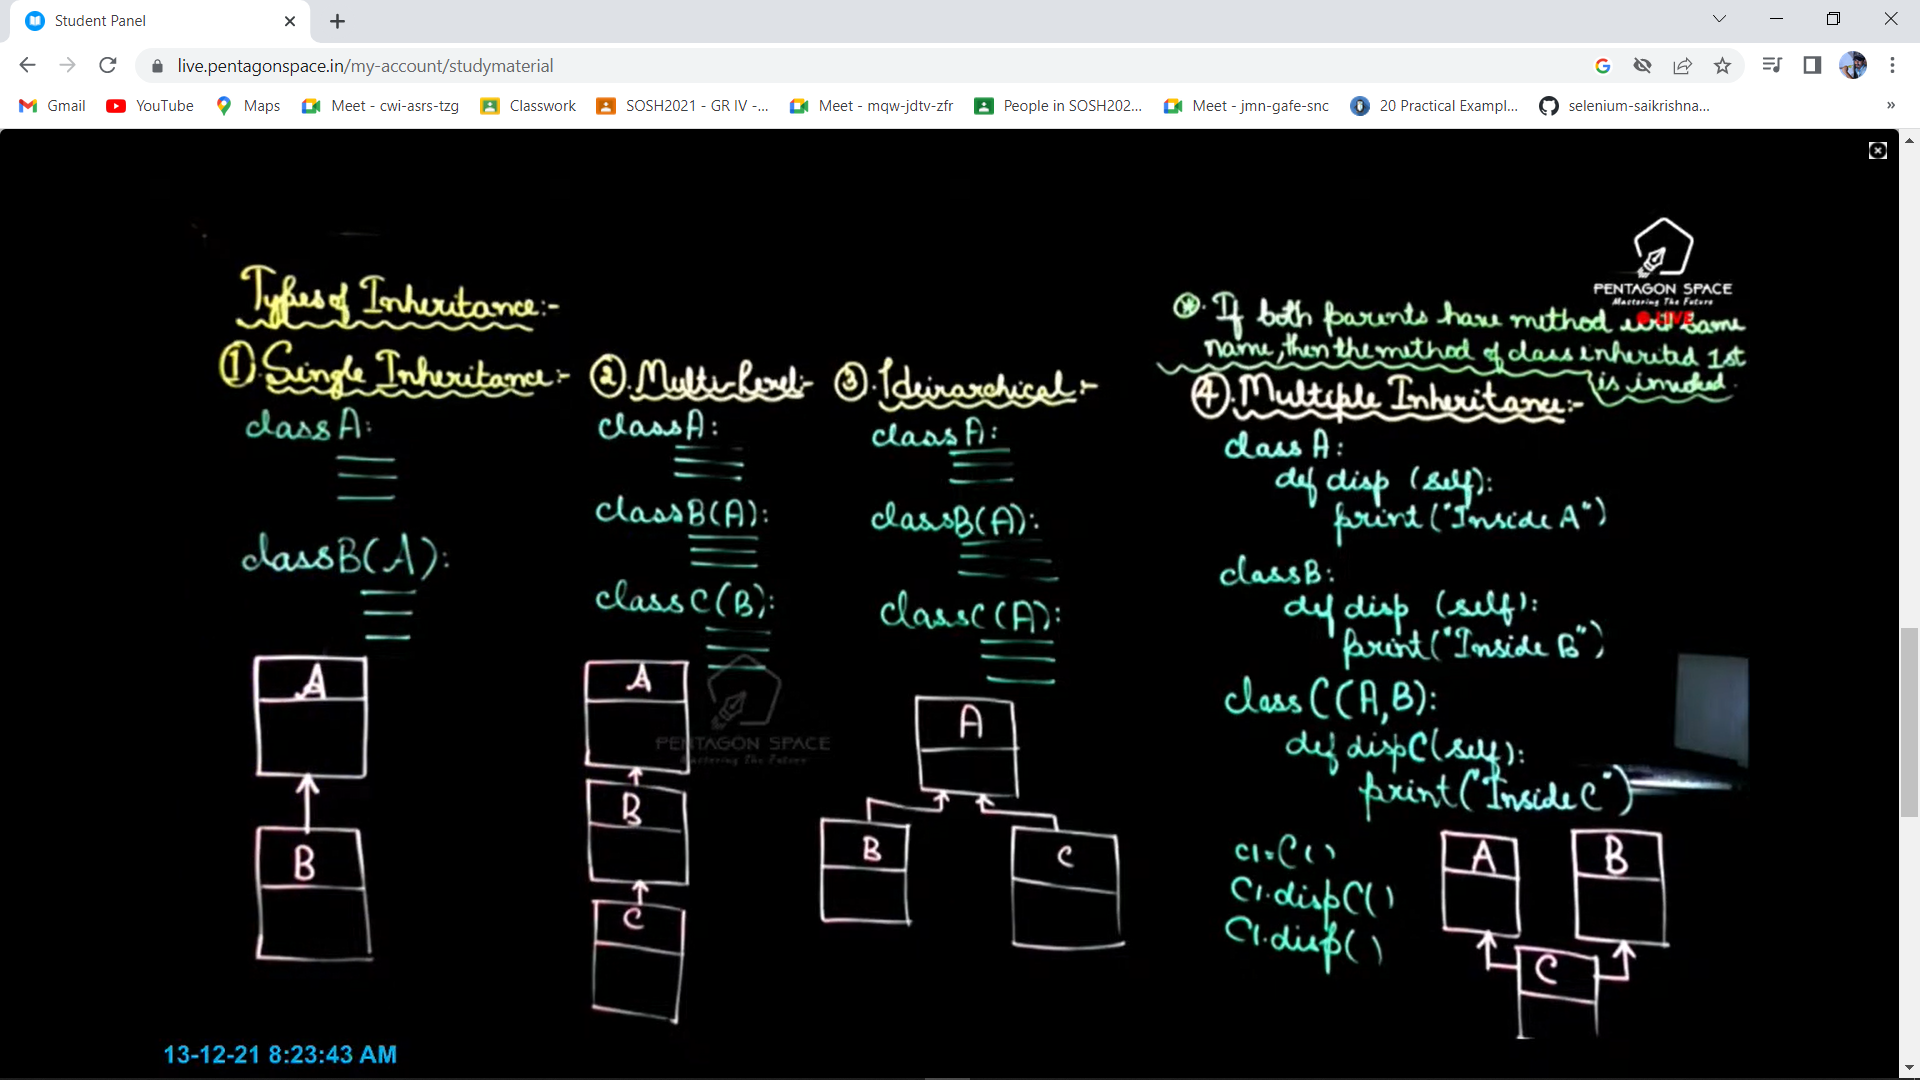 Student Panel
live.pentagonspace.in/my-account/studymaterial
Gmail YouTube Maps Meet - cwi-asrs-tzg Classwork SOSH2021 - GR IV -... Meet - mqw-jdtv-zfr People in SOSH202... Meet - jmn-gafe-snc 20 Practical Exampl... selenium-saikrishna...
PENTAGON SPACE
Mastering The Future
LIVE
Types of Inheritance:-
① Single Inheritance:-
class A:
class B(A):
A
B
②. Multi-Level:-
class A:
class B(A):
class C(B):
A
B
C
PENTAGON SPACE
Mastering The Future
③. Heirarchical:-
class A:
class B(A):
class C(A):
A
B
C
If both parents have method same
name, then the method of class inherited 1st
is invoked.
④. Multiple Inheritance:-
class A:
def disp (self):
print("Inside A")
class B:
def disp (self):
print("Inside B")
class C(A,B):
def dispC(self):
print("Inside C")
C1=C()
C1.dispC()
C1.disp()
A
B
C
13-12-21 8:23:43 AM